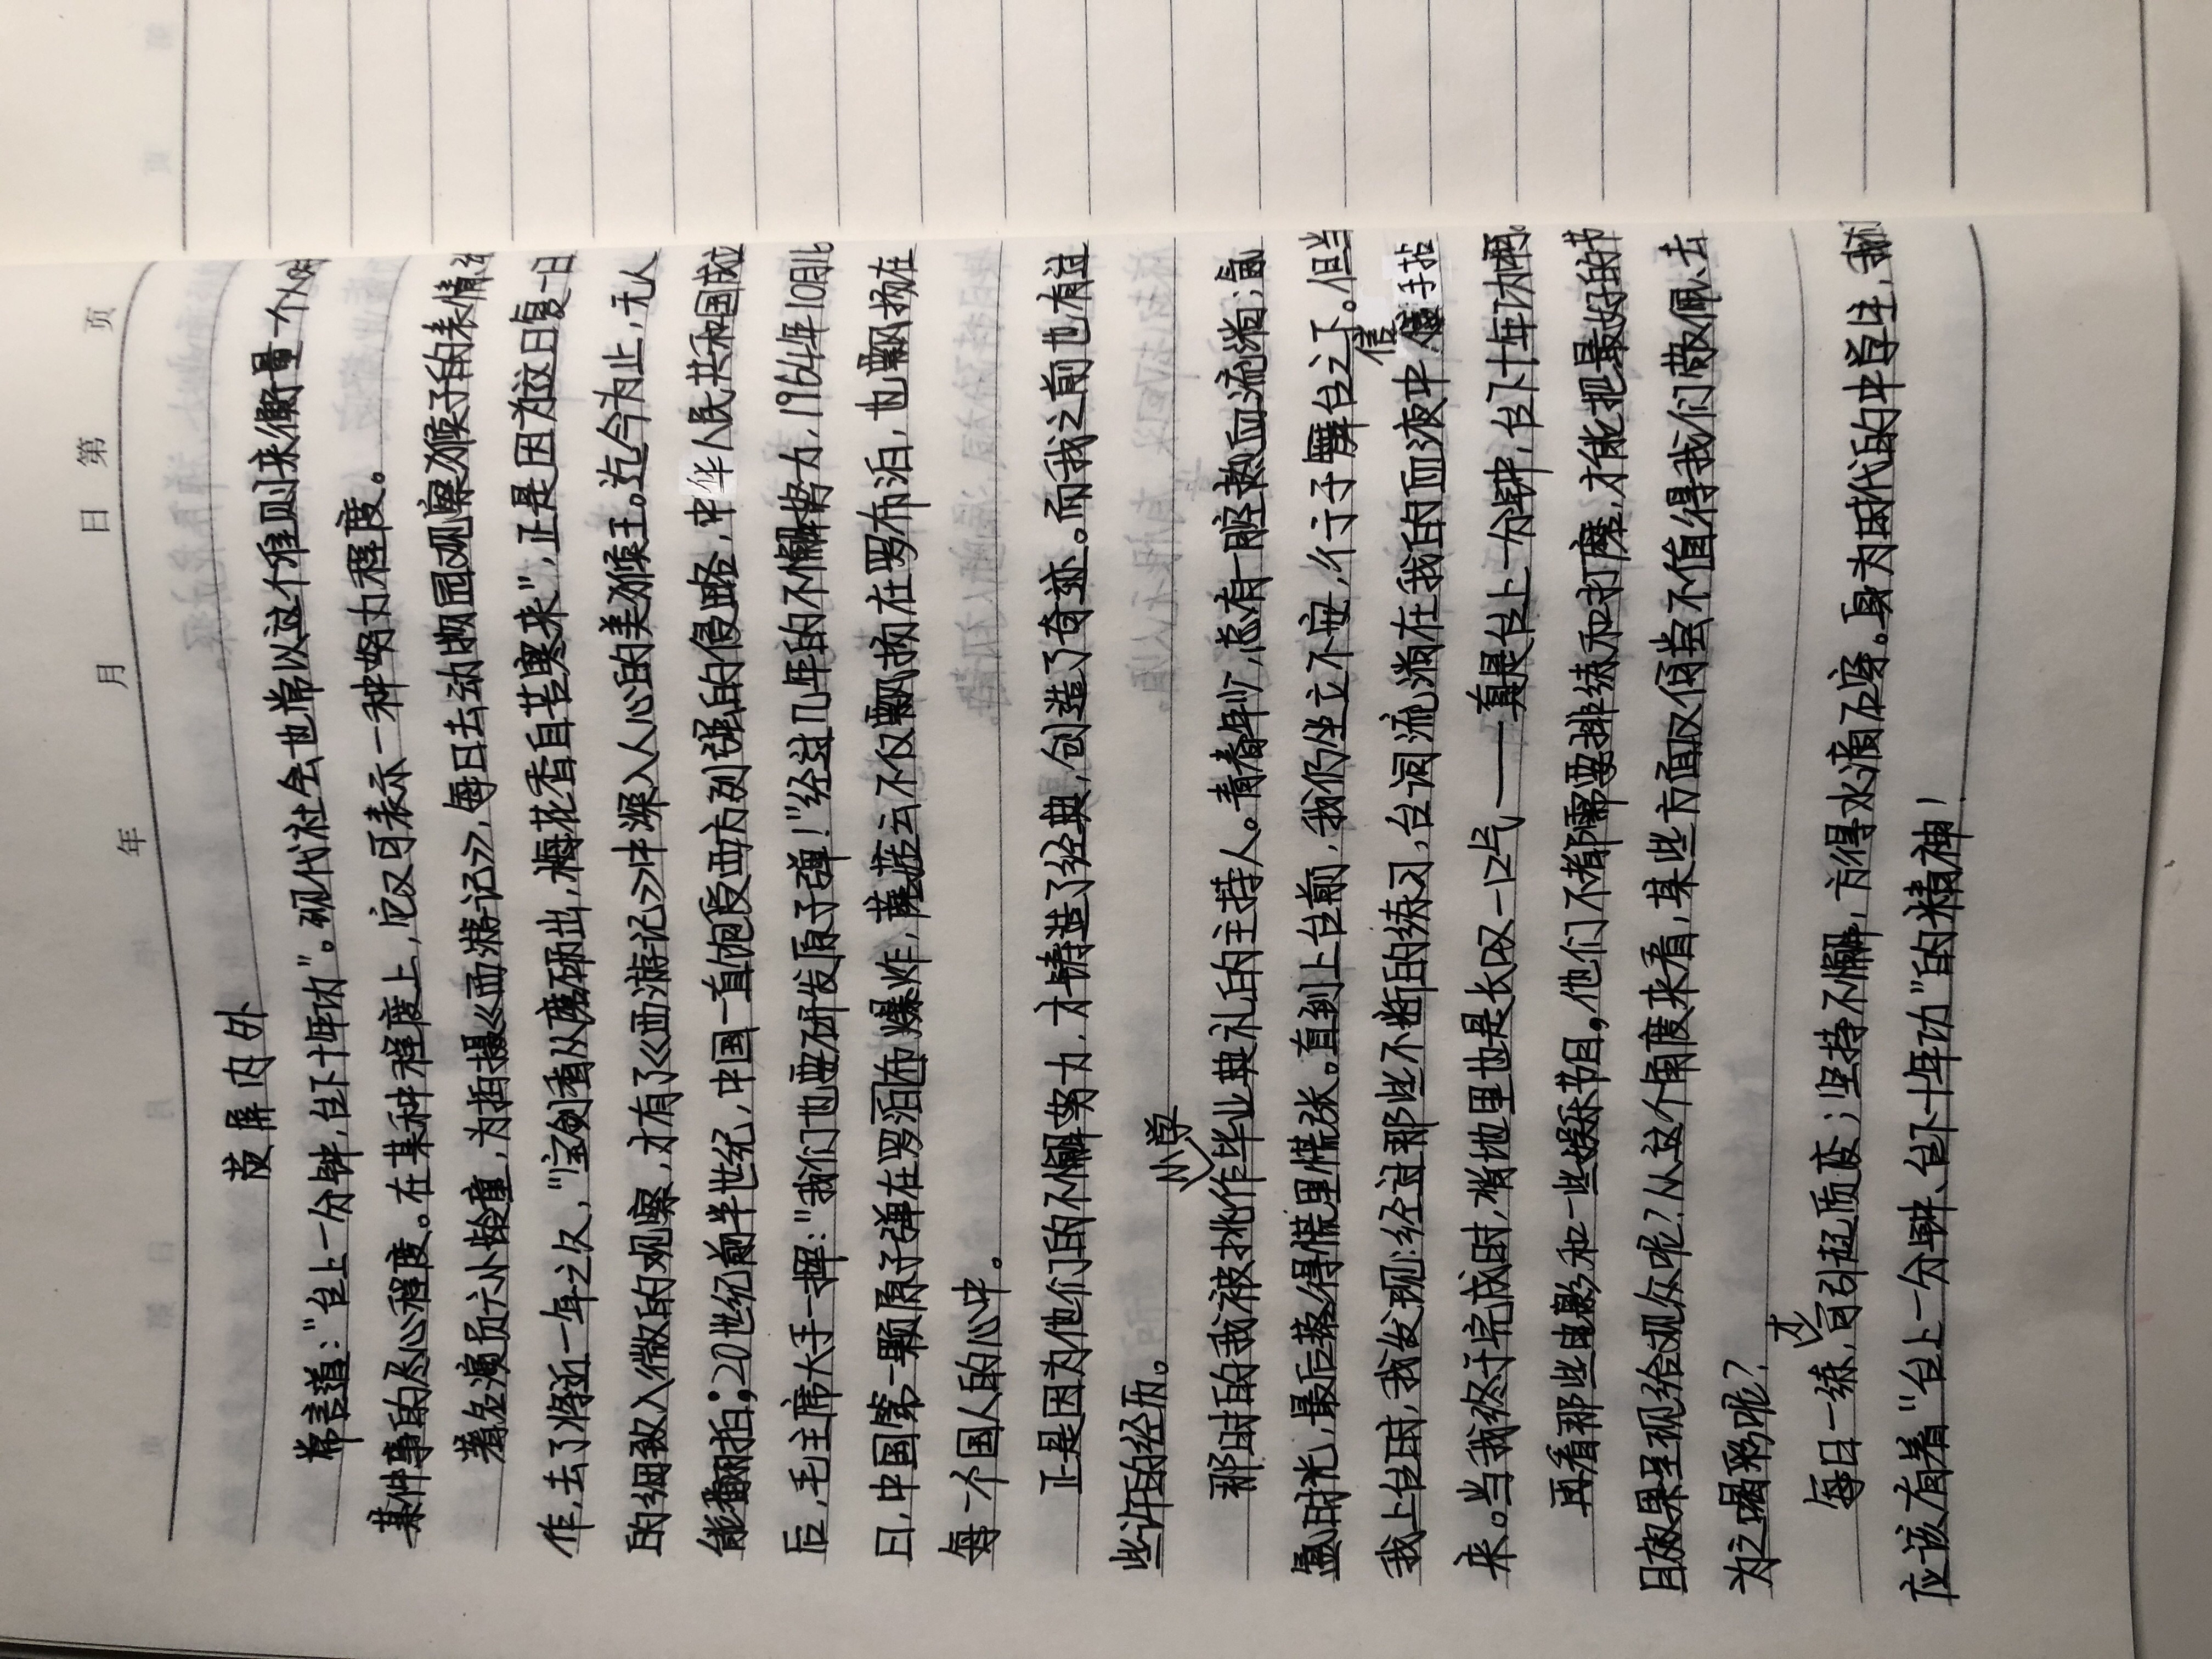 年 月 日 第 页
荧屏内外
常言道：“台上一分钟，台下十年功”。现代社会也常以这个准则来衡量一个人对
某件事的尽心程度。在某种程度上，它仅可表示一种努力程度。
著名演员六小龄童，为拍摄《西游记》，每日去动物园观察猴子的表情
作，去了将近一年之久，“宝剑香从磨砺出，梅花香自苦寒来”，正是因为这日复一日
的细致入微的观察，才有了《西游记》中深入人心的美猴王。迄今为止，无人
能翻拍；20世纪前半世纪，中国一直饱受西方列强的侵略，中华人民共和国成立
后，毛主席大手一挥：“我们也要研发原子弹！”经过几年的不懈努力，1964年10月16
日，中国第一颗原子弹在罗泊布爆炸，蘑菇云不仅飘扬在罗布泊，也飘扬在
每一个国人的心中。
正是因为他们的不懈努力，才铸造了经典，创造了奇迹。而我之前也有过
些许的经历。
那时的我被挑作小学毕业典礼的主持人。青春年少，总有一腔热血流淌；氤
氲时光，最后落得慌里慌张。直到上台前，我仍坐立不安，彳亍于舞台之下。但当
我上台时，我发现：经过那些不断的练习，台词流淌在我的血液中，信手拈
来。当我终于完成时，暗地里也是长叹一口气——真是台上一分钟，台下十年功啊。
再看那些电影和一些娱乐节目，他们不都需要排练和打磨，才能把最好的节
目效果呈现给观众呢？从这个角度来看，某些方面又何尝不值得我们敬佩、去
为之喝彩呢？
每日一练，才可引起质变；坚持不懈，方得水滴石穿。身为新时代的中学生，我们
应该有着“台上一分钟、台下十年功”的精神！